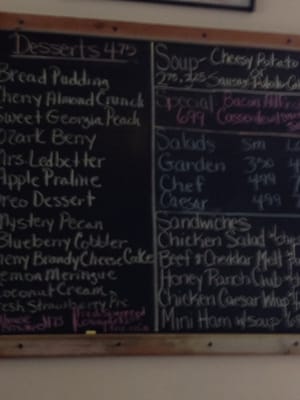 Desserts 4.75
Bread Pudding
Cherry Almond Crunch
Sweet Georgia Peach
Ozark Berry
Mrs. Ledbetter
Apple Praline
Oreo Dessert
Mystery Pecan
Blueberry Cobbler
Cherry Brandy Cheese Cake
Lemon Meringue
Coconut Cream
Fresh Strawberry Pie
Soup Cheesy Potato
or
2.75, 3.25 Sausage Potato
Special Bacon
6.99
Salads Sm
Garden 3.50
Chef 4.99
Caesar 4.99
Sandwiches
Chicken Salad
Beef & Cheddar Melt
Honey Ranch Club
Chicken Caesar Wrap
Mini Ham w/ soup